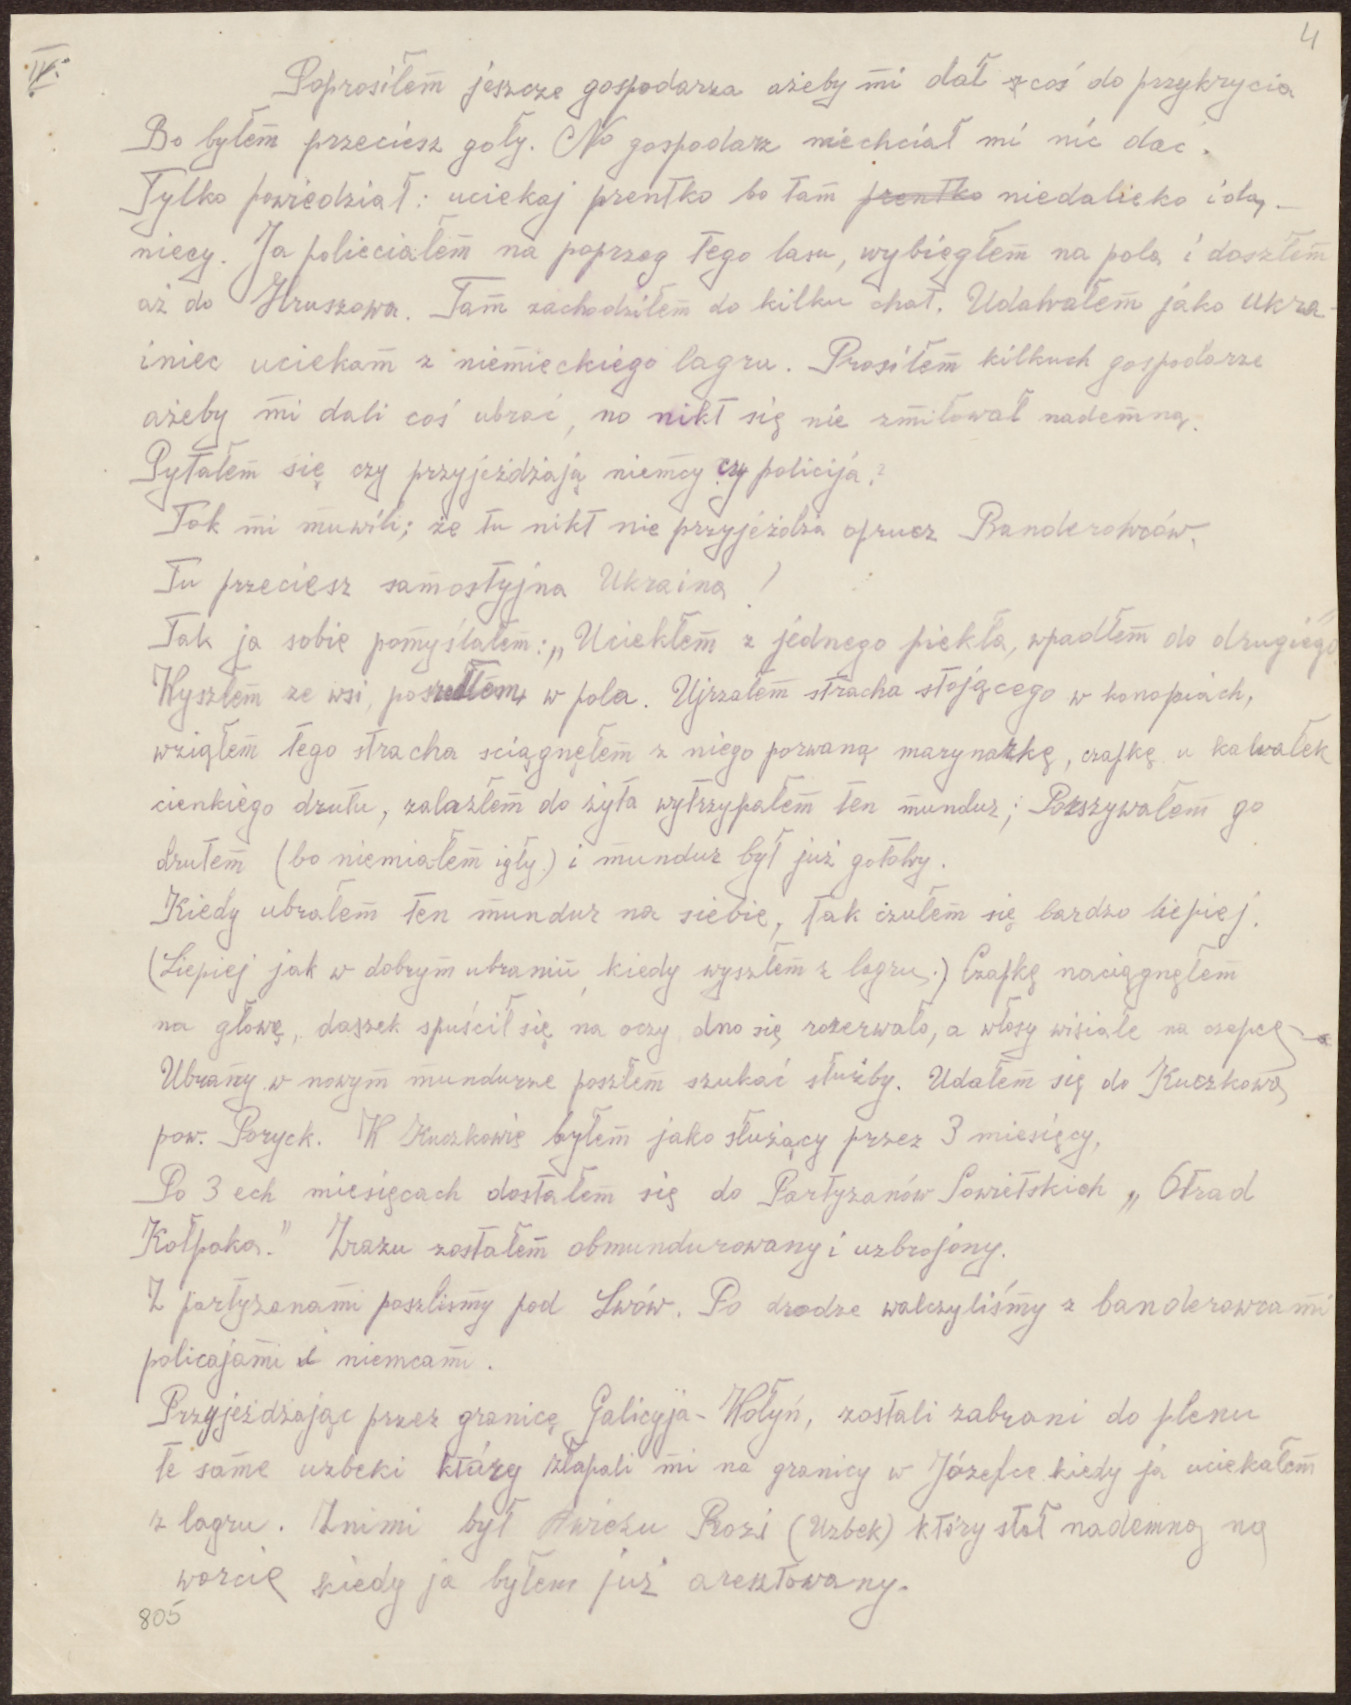 4
IV.
Poprosiłem jeszcze gospodarza ażeby mi dał coś do przykrycia
Bo byłem przeciesz goły. No gospodarz niechciał mi nic dać.
Tylko powiedział: uciekaj prentko bo tam prentko niedalieko idą
niecy. Ja polieciałem na poprzeg tego lasu, wybiegłem na pola i doszłem
aż do Hruszowa. Tam zachodziłem do kilku chat. Udawałem jako Ukra-
iniec uciekam z niemieckiego lagru. Prosiłem kilkuch gospodarze
ażeby mi dali coś ubrać, no nikt się nie zmiłował nademną.
Pytałem się czy przyjeżdżają niemcy czy policija?
Tak mi muwili; że tu nikt nie przyjeżdża oprucz Banderowców.
Tu przeciesz samostyjna Ukraina!
Tak ja sobie pomyślałem: „Uciekłem z jednego piekła, wpadłem do drugiego
Wyszłem ze wsi, poszedłem w pola. Ujrzałem stracha stojącego w konopiach,
wziąłem tego stracha sciągnęłem z niego porwaną marynarkę, czapkę u kawałek
cienkiego drutu, zalazłem do żyta wytrzypałem ten mundur; Pozszywałem go
drutem (bo niemiałem igły) i mundur był już gotowy.
Kiedy ubrałem ten mundur na siebie, tak czułem się bardzo liepiej.
(Liepiej jak w dobrym ubraniu kiedy wyszłem z lagru.) Czapkę naciągnęłem
na głowę, daszek spuścił się na oczy, dno się rozerwało, a włosy wisiałe na czapcę
Ubrany w nowym mundurze poszłem szukać służby. Udałem się do Kuczkowa
pow. Poryck. W Kuczkowie byłem jako służący przez 3 miesięcy,
Po 3 ech miesięcach dostałem się do Partyzanów Sowietskich „Otrad
Kołpaka." Zrazu zostałem obmundurowany i uzbrojony.
Z partyzanami poszlismy pod Lwów. Po drodze walczyliśmy z banderowcami
policajami i niemcami.
Przyjeżdżając przez granicę Galicyja-Wołyń, zostali zabrani do plenu
te same uzbeki którzy złapali mi na granicy w Józefce kiedy ja uciekałem
z lagru. Znimi był Rozi (Uzbek) który stał nademną na
warcie kiedy ja byłem już aresztowany.
805